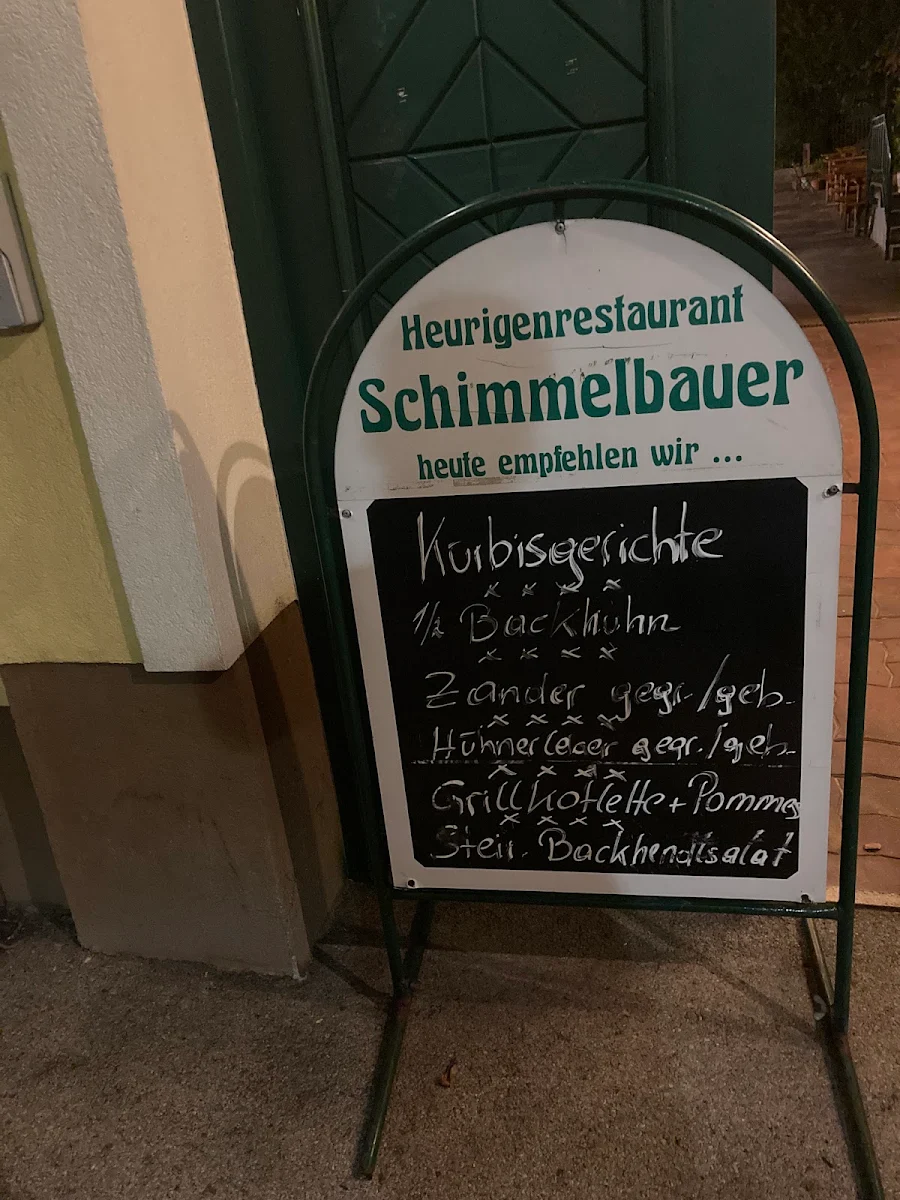 Heurigenrestaurant
Schimmelbauer
heute empfehlen wir ...
Kürbisgerichte
x x x x
1/2 Backhuhn
x x x x
Zander gegr./geb.
x x x x
Hühnerleber gegr./geb.
x x x x
Grillkotlette + Pommes
x x x x
Steir. Backhendlsalat